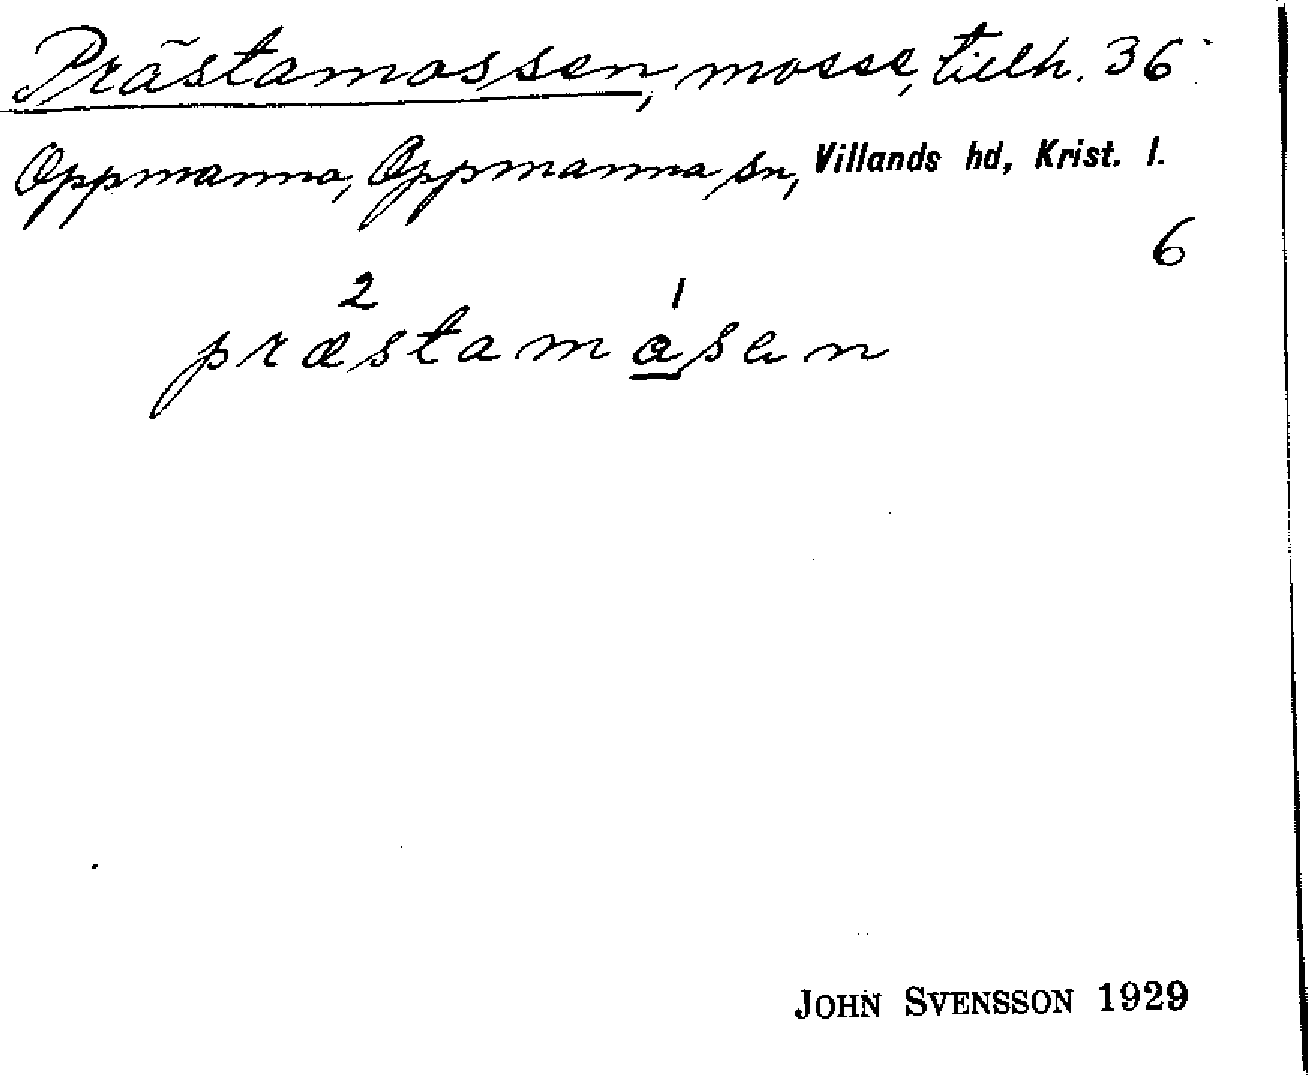 Prästamossen, mosse, tillh. 36
Oppmanna, Oppmanna sn, Villands hd, Krist. l.
6
2 1
præstamåsen
JOHN SVENSSON 1929